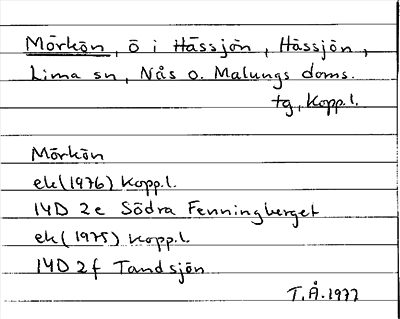 Mörkön, ö i Hässjön, Hässjön,
Lima sn, Nås o. Malungs doms.
tg, Kopp.l.
Mörkön
ek (1976) Kopp.l.
14D 2e Södra Fenningberget
ek (1975) Kopp.l.
14D 2f Tandsjön
T.Å. 1977